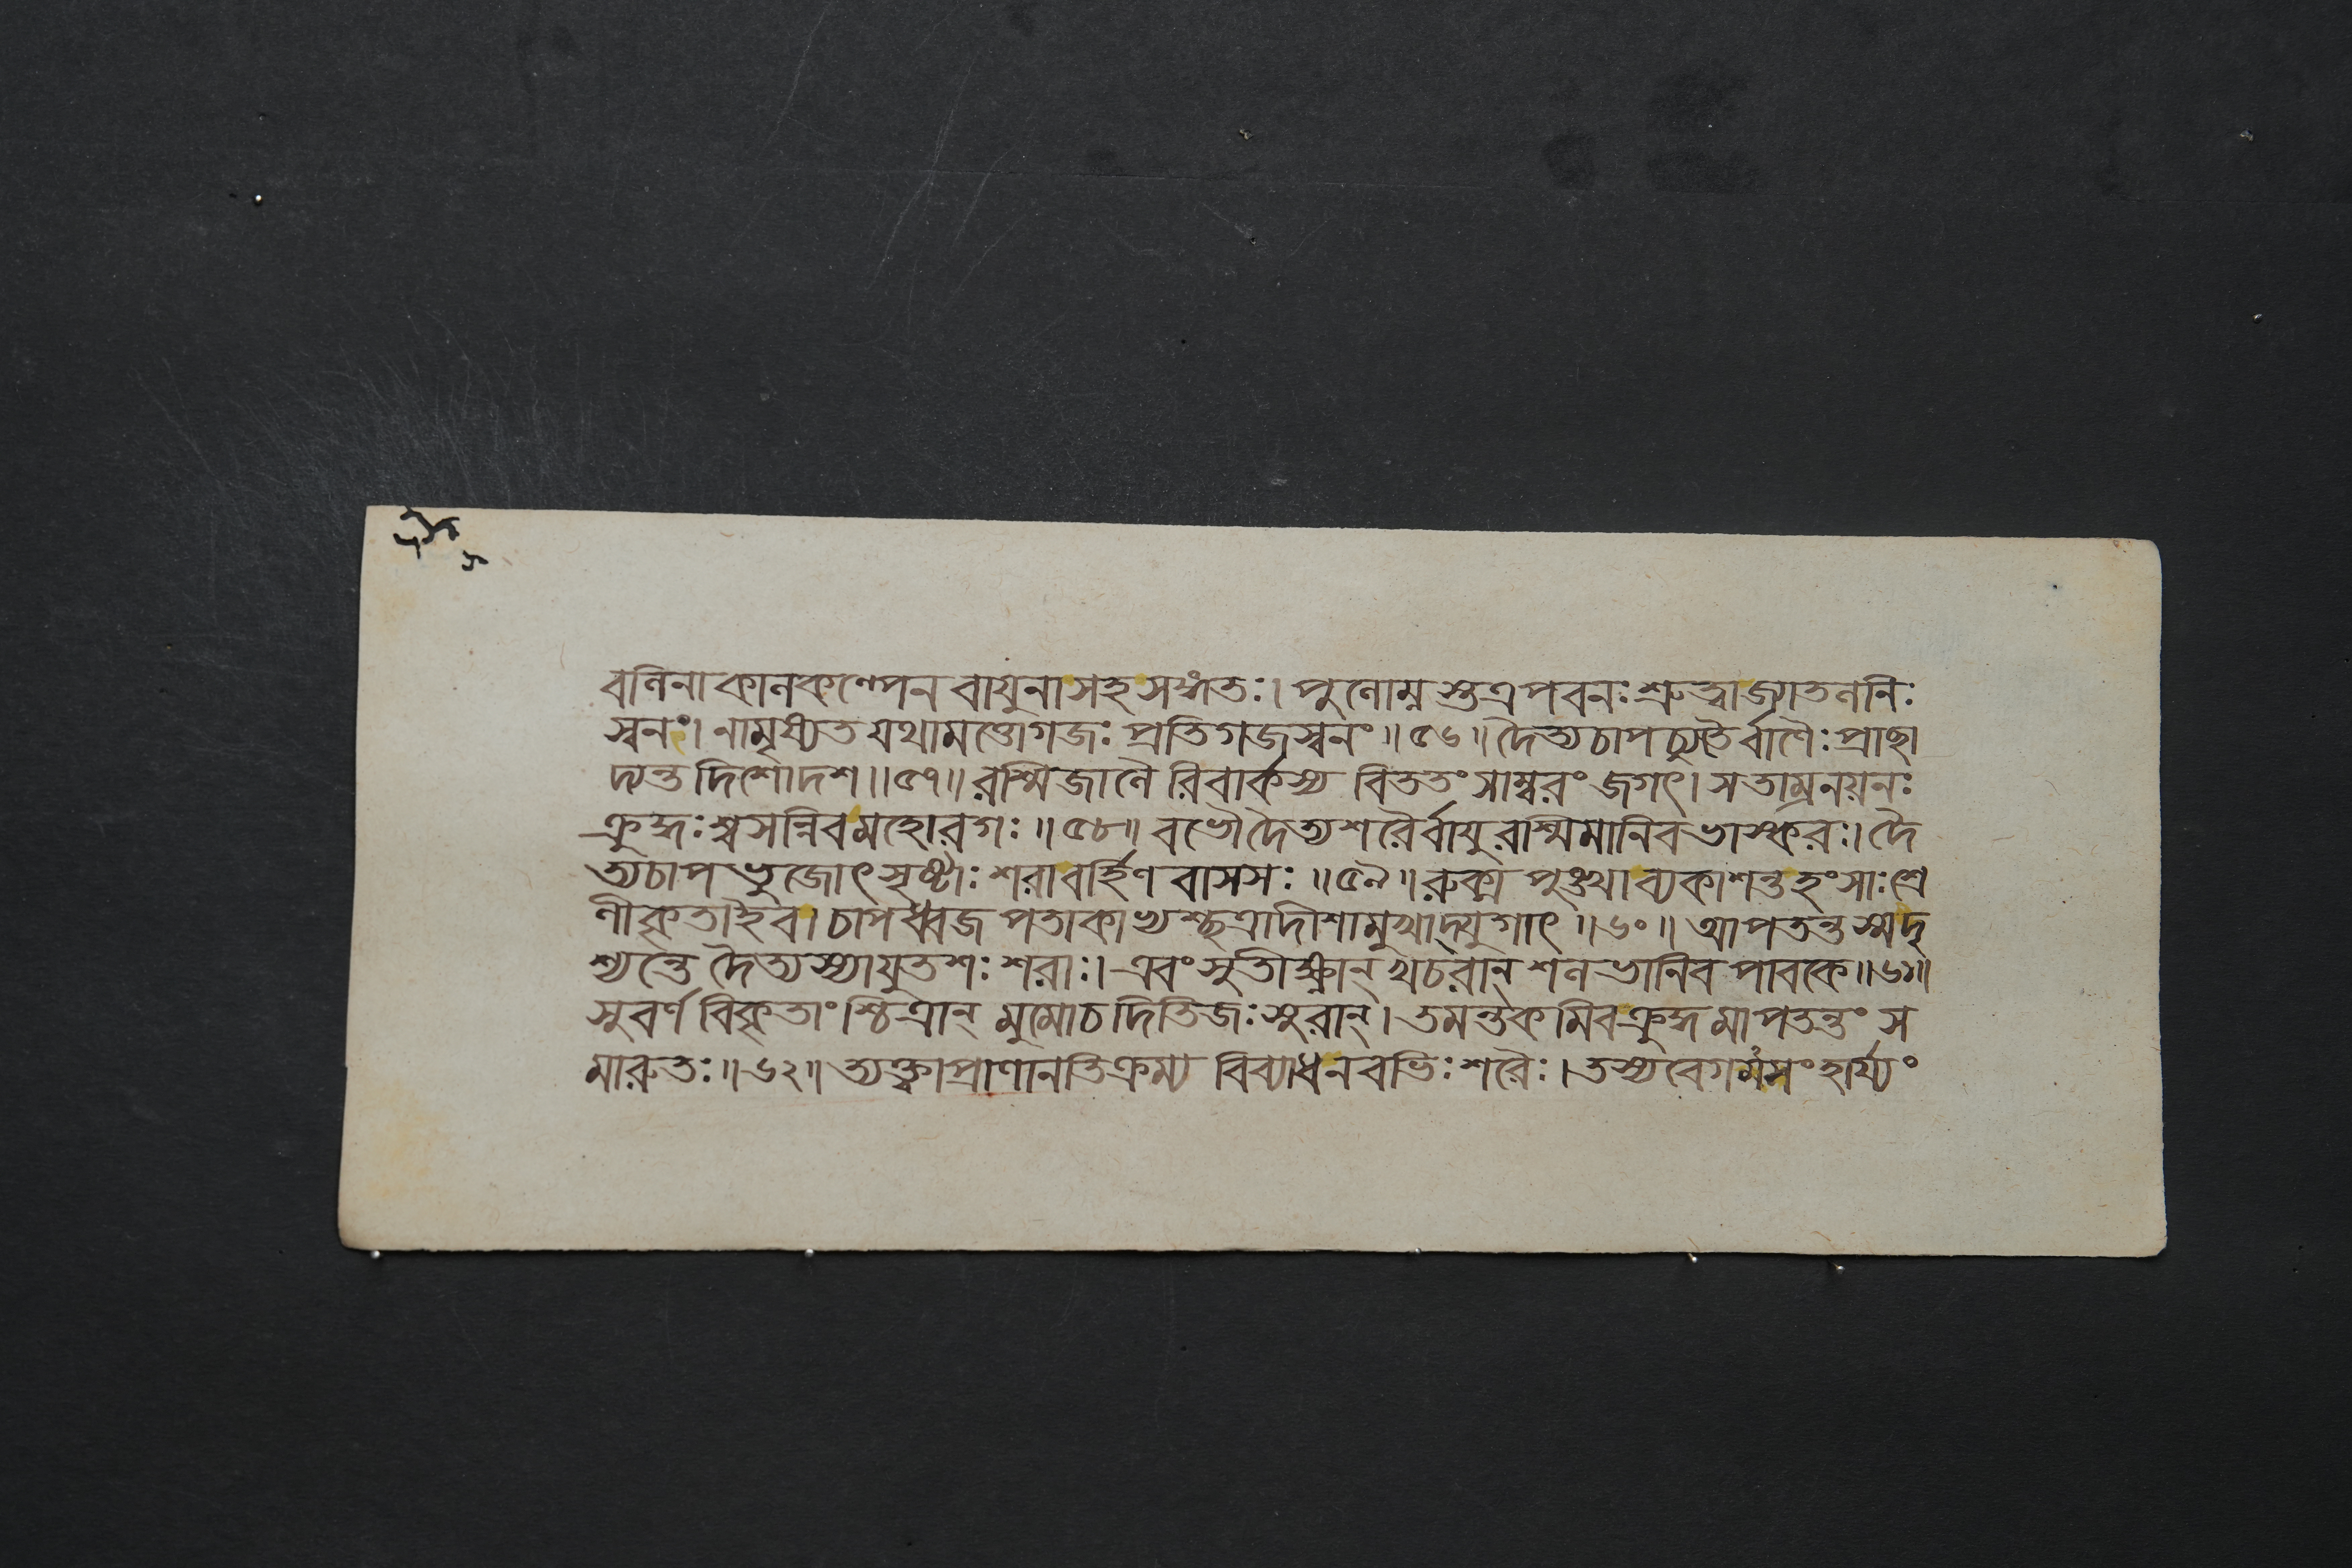 বলিনা কালকল্পেন বায়ুনা সহ সঙ্গতঃ। পুলোম্নস্তু এ পবনঃ শ্রুত্বা জ্যাতলনিঃ
স্বনং। নামৃষ্যত যথা মত্তো গজঃ প্রতিগজস্বনং॥৫৬॥ দৈত্যচাপচ্যুতৈর্বাণৈঃ প্রাছা
দ্যন্ত দিশো দশ॥৫৭॥ রশ্মিজালৈ রিবার্কস্য বিততং সাম্বরং জগৎ। স তাম্রনয়নঃ
ক্রুদ্ধঃ শ্বসন্নিব মহোরগঃ॥৫৮॥ বভৌ দৈত্যশরৈর্বায়ু রশ্মিমানিব ভাস্করঃ। দৈ
ত্যচাপভুজোৎসৃষ্টাঃ শরা বর্হিণবাসসঃ॥৫৯॥ রুক্মপুঙ্খা ব্যকাশন্ত হংসাঃ শ্রে
ণীকৃতা ইব। চাপধ্বজপতাকাখ্যশ্ছত্রাদীশামুখাদ্যুগাৎ॥৬০॥ আপতন্ত স্মদৃ
শ্যন্তে দৈত্যস্যাযুতশঃ শরাঃ। এবং সুতীক্ষ্ণান্ খচরান্ শলভানিব পাবকে॥৬১॥
সুবর্ণবিকৃতাংশ্চিত্রান্ মুমোচ দিতিজঃ স্তুরান্। তমন্তকমিব ক্রুদ্ধমাপতন্তং স
মারুতঃ॥৬২॥ ত্যক্ত্বা প্রাণানতিক্রম্য বিব্যাধ নবভিঃ শরৈঃ। তস্য বেগমসংহার্য্যং